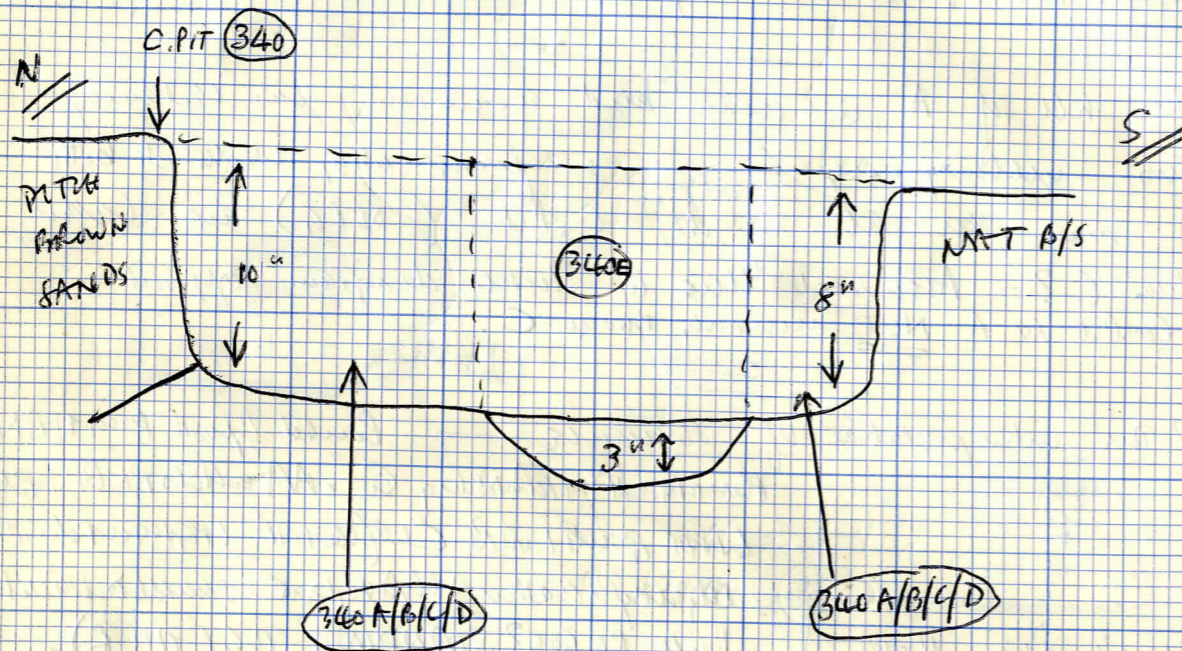 C.PIT 340
N
S
DITCH
BROWN
SANDS
10"
340E
8"
NAT B/S
3"
340 A/B/C/D
340 A/B/C/D